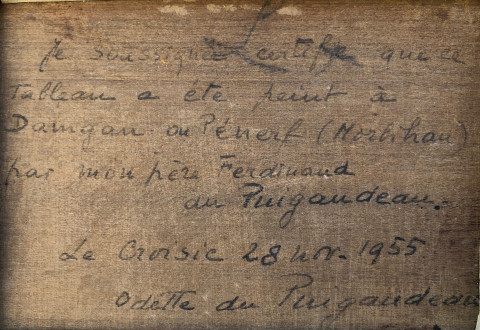 Je soussignée certifie que ce
Tableau a été peint à
Damgan ou Pénerf (Morbihan)
par mon père Ferdinand
du Puigaudeau.
Le Croisic 28 nov. 1955
Odette du Puigaudeau